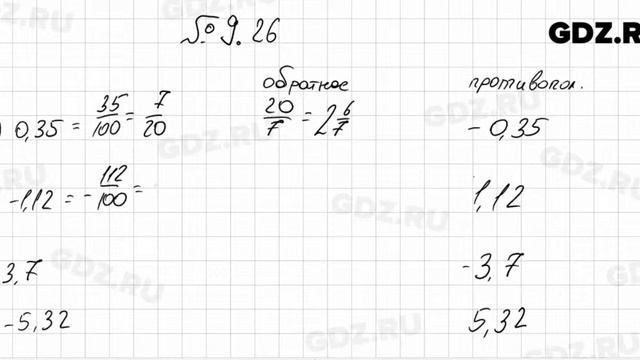 № 9.26
GDZ.R
обратное
противопол.
) 0,35 = 35/100 = 7/20
20/7 = 2 6/7
- 0,35
-1,12 = - 112/100 =
1,12
3,7
-3,7
-5,32
5,32
GDZ.RU
GDZ.RU
GDZ.RU
GDZ.RU
GDZ.RU